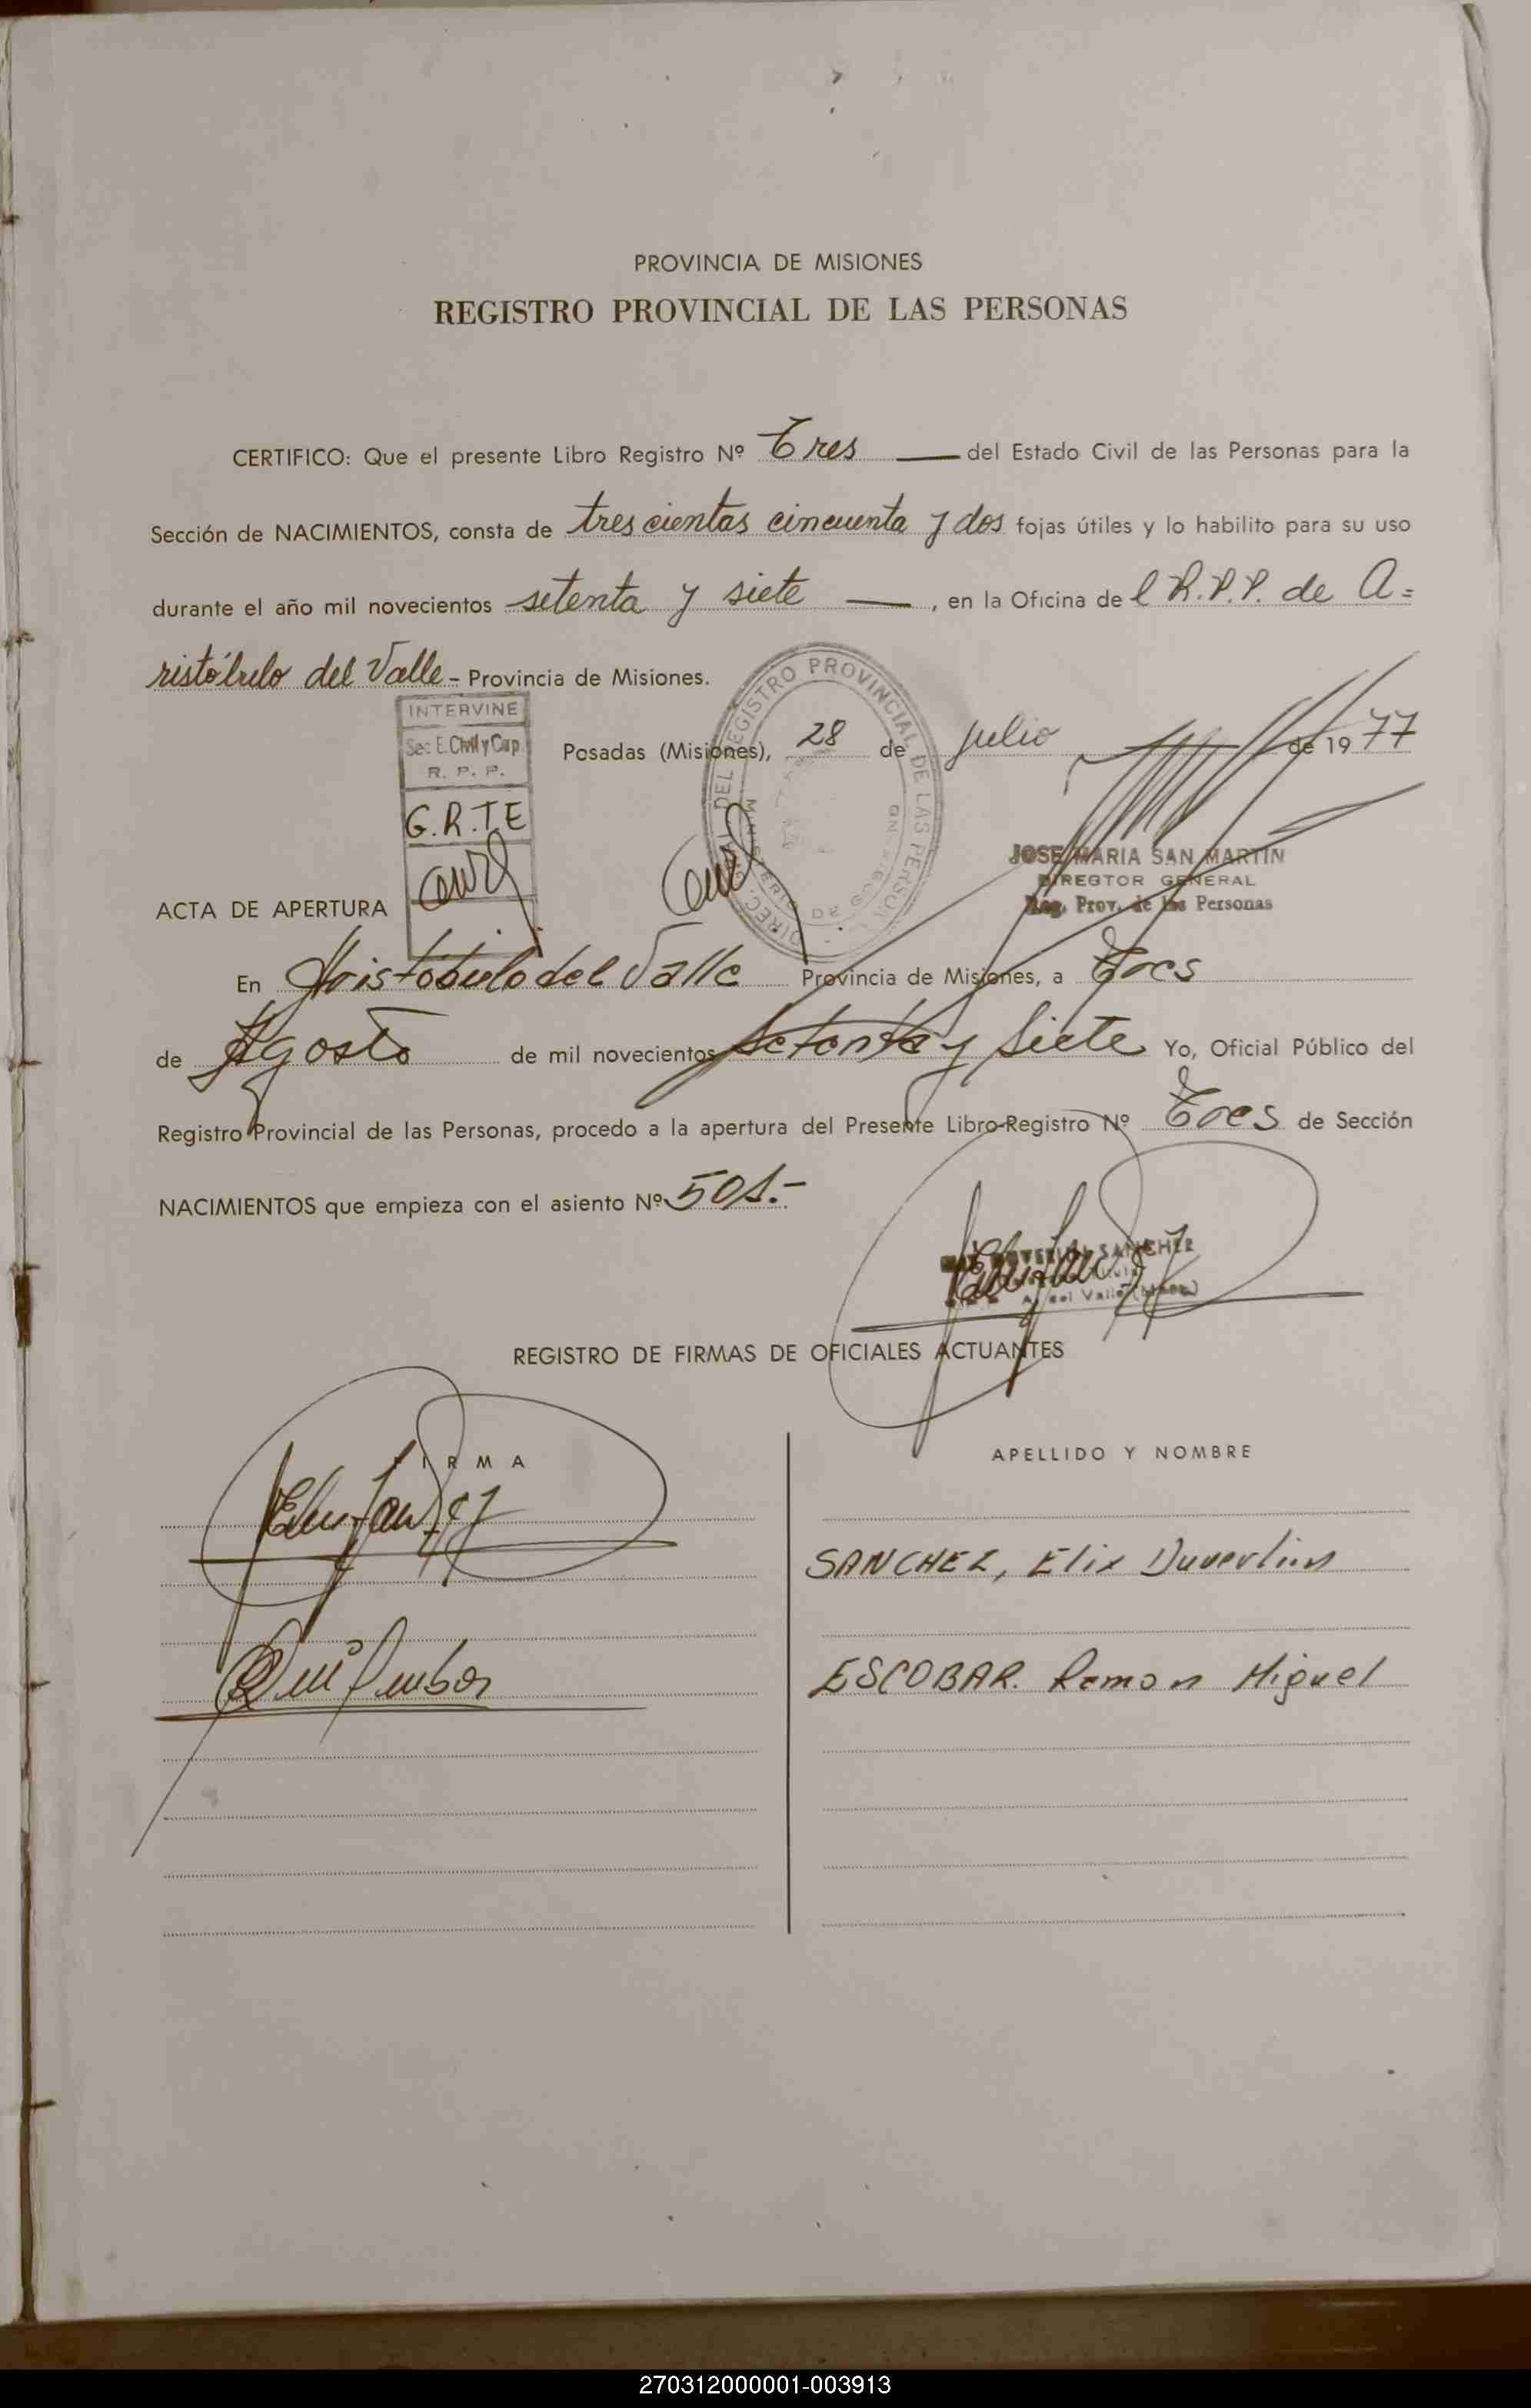 PROVINCIA DE MISIONES
REGISTRO PROVINCIAL DE LAS PERSONAS
CERTIFICO: Que el presente Libro Registro Nº Tres — del Estado Civil de las Personas para la
Sección de NACIMIENTOS, consta de trescientas cincuenta y dos fojas útiles y lo habilito para su uso
durante el año mil novecientos setenta y siete —, en la Oficina de l R.P.P. de A=
ristóbulo del Valle - Provincia de Misiones.
INTERVINE
Sec E. Civil y Cap.
R. P. P.
G.R.T.E
Posadas (Misiones), 28 de julio de 1977
DIREC. GRAL. DEL REGISTRO PROVINCIAL DE LAS PERSONAS
MINISTERIO DE GOBIERNO
JOSE MARIA SAN MARTIN
DIRECTOR GENERAL
Reg. Prov. de las Personas
ACTA DE APERTURA
En Aristóbulo del Valle Provincia de Misiones, a Tres
de Agosto de mil novecientos setenta y siete Yo, Oficial Público del
Registro Provincial de las Personas, procedo a la apertura del Presente Libro-Registro Nº Tres de Sección
NACIMIENTOS que empieza con el asiento Nº 501.-
SANCHEZ
A. del Valle (Mnes.)
REGISTRO DE FIRMAS DE OFICIALES ACTUANTES
FIRMA
APELLIDO Y NOMBRE
SANCHEZ, Elix Duverlius
ESCOBAR. Ramon Miguel
270312000001-003913